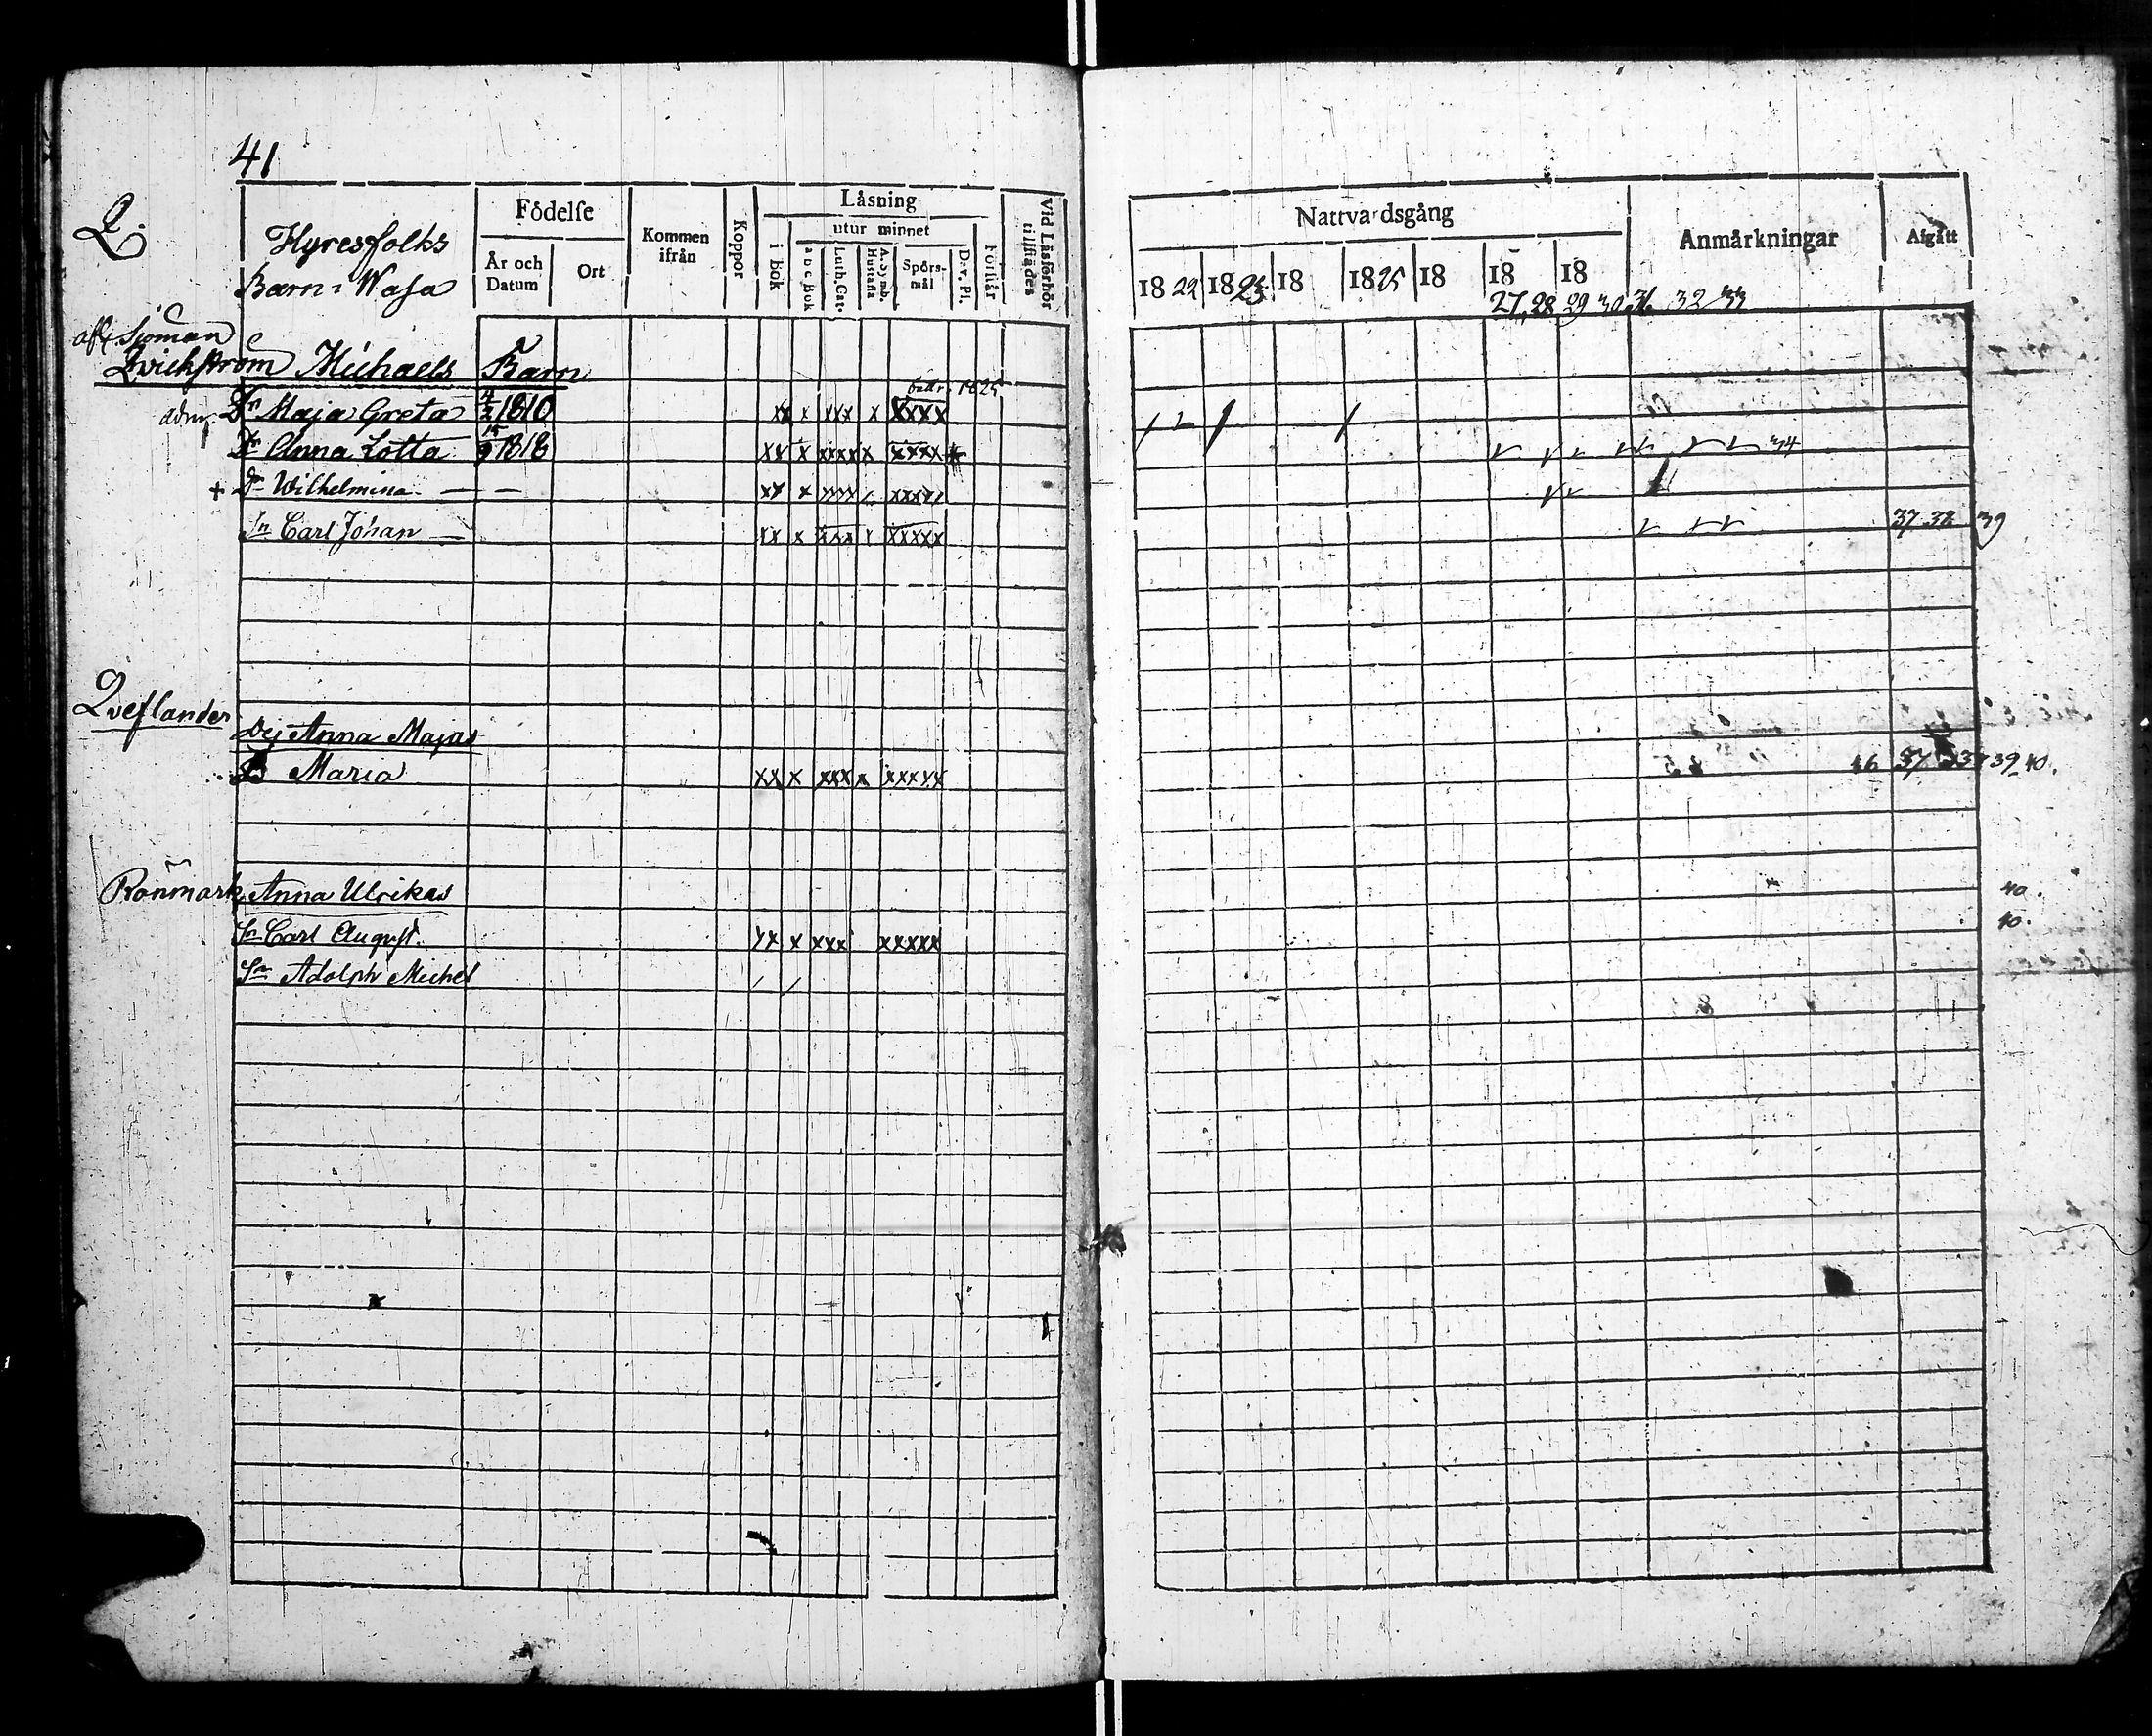 41
Q.
Hyresfolks
Barn i Wasa
Födelse
År och
Datum
Ort
Kommen
ifrån
Koppor
Läsning
i Bok
utur minnet
a b c Bok
Luth. Cat.
A. Symb.
Hustafla
Spörs-
mål
Dav. Ps.
Förstår
Vid Läsförhör
tillstädes
Nattvardsgång
18 24 18 25 18 18 25 18 18 18
27 28 29 30 31 32 33
Anmärkningar
Afgått
afl. Sjöman
Qvickström Michaels Barn
1825
adm. Dr Maja Greta 4/3 1810 xx x xxx x xxxx
Dr Anna Lotta 15/9 1818 xx x xxxx x xxxx 34
+ Dr Wilhelmina — — xx x
Sn Carl Johan — xx x xxx x xxxxx 37 38 39
Qveflander
Pig Anna Majas
Maria xx x xxx x xxxxx 36 37 39 40.
Rönmark Anna Ulrikas 40.
Sn Carl August. xx x xxx xxxxx 40.
Sn Adolph Michel